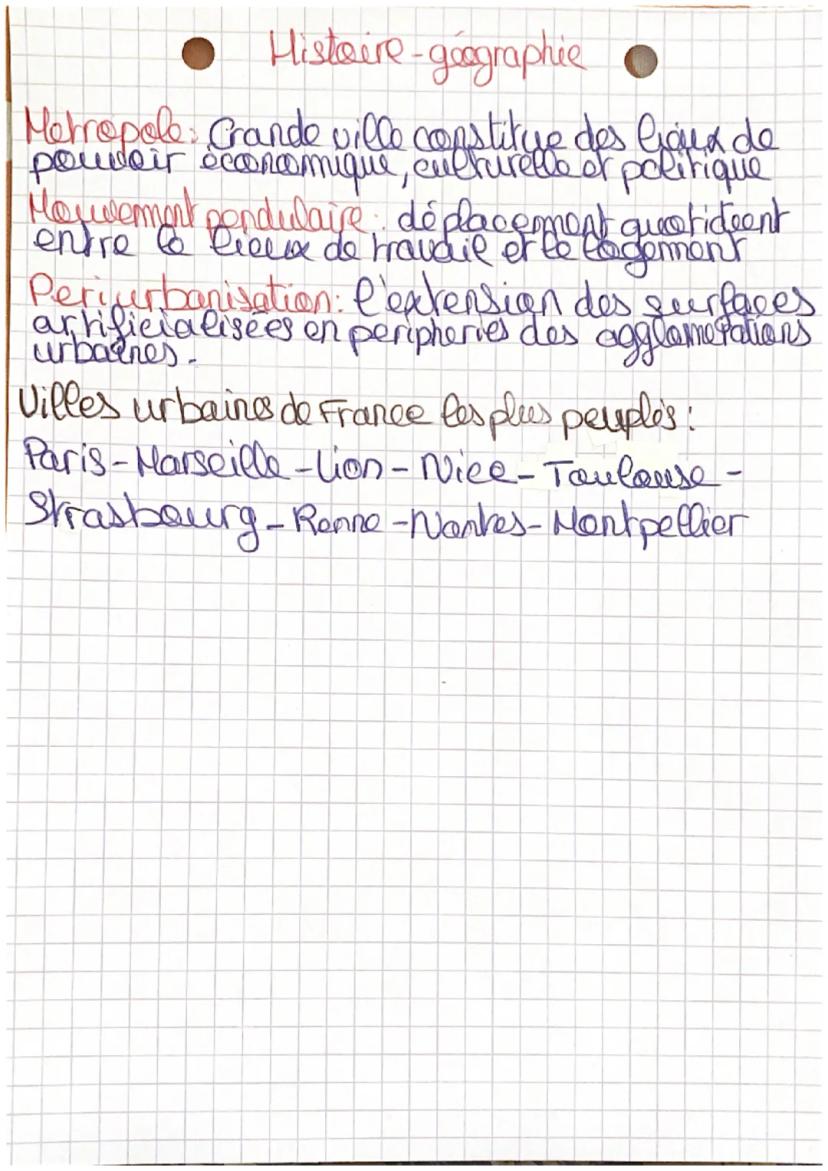 Histoire-géographie
Metropole: Grande ville constitue des lieux de
pouvoir économique, culturelle et politique
Mouvement pendulaire: déplacement quotideent
entre le lieux de travaile et le logement
Periurbanisation: l'extension des surfaces
artificialisées en peripheries des agglomerations
urbaines.
Villes urbaines de France les plus peuplés:
Paris-Marseille-Lion-Nice-Toulouse-
Strasbourg-Renne-Nantes-Montpellier